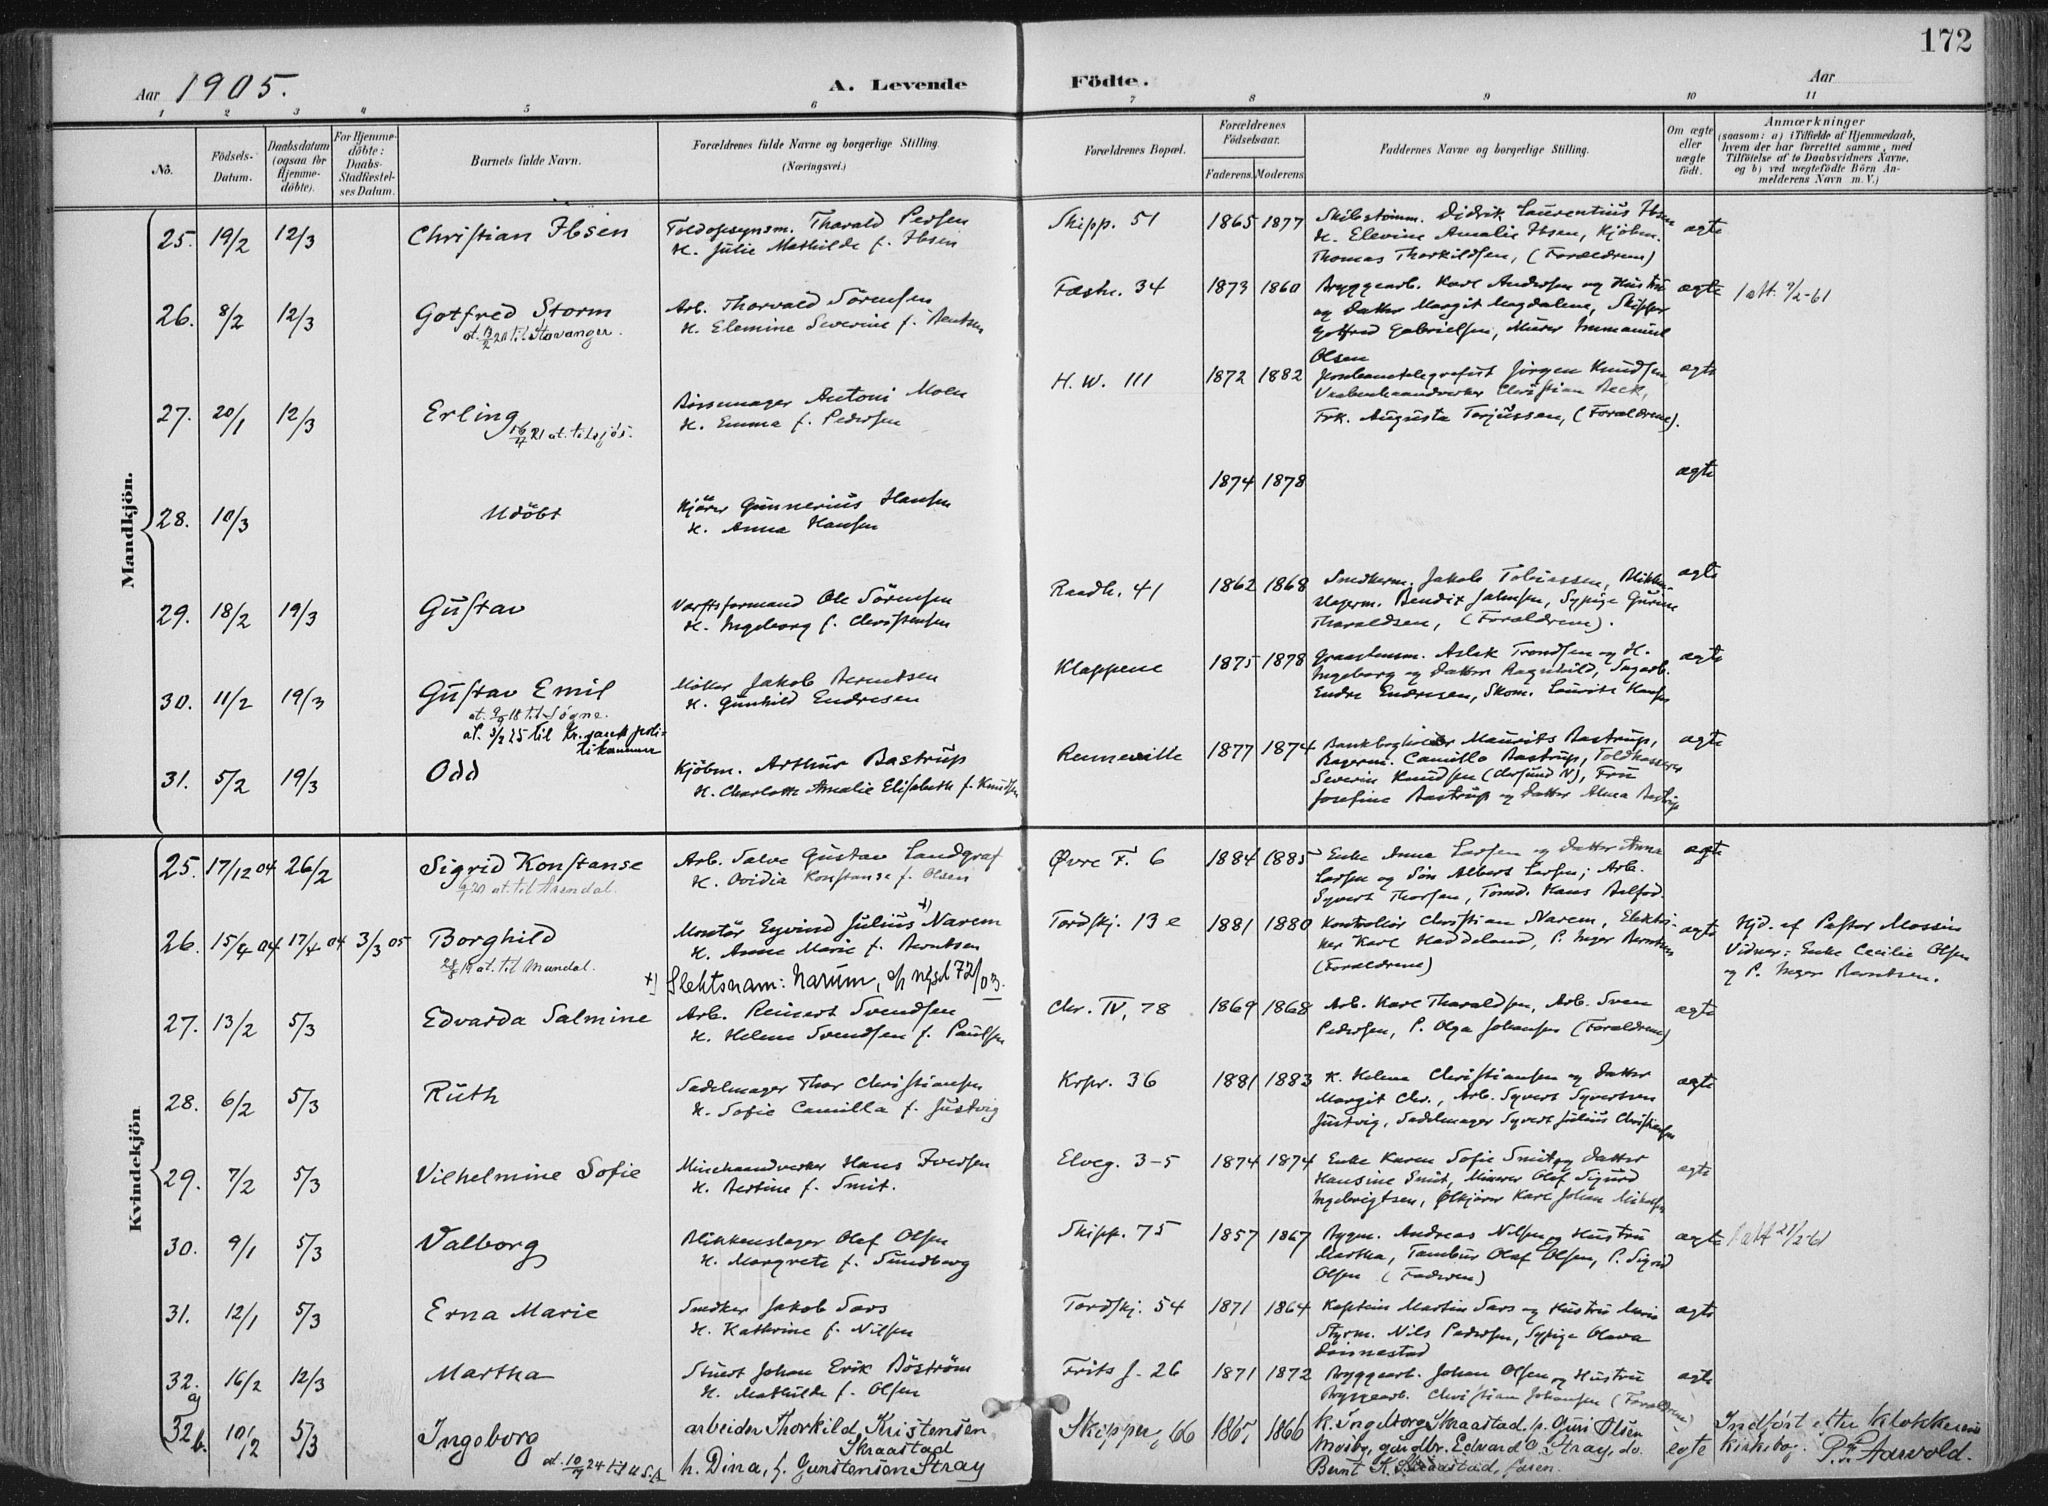 172
Aar 1905.
A. Levende
Födte.
Aar
1 2 3 4 5 6 7 8 9 10 11
No.
Födsels-
Datum.
Daabsdatum
(ogsaa for
Hjemme-
döbte).
For Hjemme-
döbte:
Daabs-
Stadfæstel-
ses Datum.
Barnets fulde Navn.
Forældrenes fulde Navne og borgerlige Stilling.
(Næringsvei.)
Forældrenes Bopæl.
Forældrenes
Födselsaar.
Faderens.
Moderens.
Faddernes Navne og borgerlige Stilling.
Om ægte
eller
uægte
født.
Anmærkninger
(saasom: a) i Tilfælde af Hjemmedaab,
hvem der har forrettet samme, med
Tilföielse af to Daabsvidners Navne,
og b) ved uægtefödte Börn An-
melderens Navn m. V.)
Mandkjön.
25. 19/2 12/3 Christian Ibsen
Toldopsynsm. Tharald Pedsen
H. Julie Mathilde f. Ibsen
Skipp. 51 1865 1877
Skibstömm. Didrik Laurentius Ibsen
H. Elevine Amalie Ibsen, Kjöbm.
Thomas Thorkildsen, (Forældrene)
ægte
26. 8/2 12/3 Gotfred Storm
til Stavanger.
Arb. Thorvald Sörensen
H. Elemine Severine f. Berntsen
Fæstn. 34 1873 1860
Bryggearb. Karl Andersen og Hustru
og Datter Margit Magdalene, Skipper
Gotfred Gabrielsen, Murer Immanuel
Olsen
ægte
27. 20/1 12/3 Erling
21 at. til sjös.
Börsemager Antoni Moen
H. Emma f. Pedersen
H. W. 111 1872 1882
Jörgen Knudsen,
Christian Beck,
Frk. Augusta Terjussen, (Forældrene).
ægte
28. 10/3 Udöbt
Kjörer Gunnerius Hansen
H. Anna Hansen
1874 1878
ægte
29. 18/2 19/3 Gustav
Verftsformand Ole Sörensen
H. Ingeborg f. Christensen
Raadh. 41 1862 1868
Snedkerm. Jakob Tobiassen, Blikken-
slagerm. Bendix Jahnsen, Sypige Gurine
Tharaldsen, (Forældrene).
ægte
30. 11/2 19/3 Gustav Emil
at. 9/9 18 til Søgne.
at. 3/2 25 til Kr.sands poli-
tikammer
Jakob Berntsen
H. Gunhild Endresen
Klappene 1875 1878
Aslak Trondsen og H.
Ingeborg og Datter Ragnhild, Sagarb.
Endre Endresen, Skom. Lauritz Hansen
ægte
31. 5/2 19/3 Odd
Kjöbm. Arthur Bastrup
H. Charlotte Amalie Elisabeth f. Knudsen
Renneville 1877 1874
Bankbogholder Maurits Bastrup,
Bagerm. Camillo Bastrup, Toldkasserer
Severin Knudsen (Chrsund N), Fru
Josefine Bastrup og Datter Alma Bastrup
ægte
Kvindekjön
25. 17/12 04 26/2 Sigrid Konstanse
20 at. til Arendal.
Arb. Salve Gustav Landgraf
H. Ovidia Konstanse f. Olsen
Øvre F. 6 1884 1885
Enke Anna Larsen og Datter Anna
Larsen og Sön Albert Larsen, Arb.
Syvert Thorsen, Tömd. Hans
ægte
26. 15/4 04 17/4 04 3/3 05 Borghild
at. til Mandal.
Montör Eyvind Julius +) Narem
H. Anne Marie f. Berntsen
+) Slektsnavn: Narum,
Tordskj. 13 e 1881 1880
Kontrollör Christian Narem, Elektri-
ker Karl Haddeland, P. Inger Berntsen
(Forældrene)
ægte
Hjd. af Pastor Mossin
Vidner: Enke Cecilie Olsen
og P. Inger Berntsen.
27. 13/2 5/3 Edvarda Salmine
Arb. Reinert Svendsen
H. Helene Svendsen f. Paulsen
Chr. IV, 78 1869 1868
Arb. Karl Tharaldsen, Arb. Sven
Pedersen, P. Olga Johansen (Forældrene)
ægte
28. 6/2 5/3 Ruth
Sadelmager Thor Christiansen
H. Sofie Camilla f. Justvig
Krpr. 36 1881 1883
K. Helene Christiansen og Datter
Margit Chr., Arb. Syvert Syvertsen
Justvig, Sadelmager Syvert Julius Christiansen
ægte
29. 7/2 5/3 Vilhelmine Sofie
Minehaandverker Hans Iversen
H. Bertine f. Smit.
Elveg. 3-5 1874 1874
Enke Karen Sofie Smit og Datter
Hansine Smit, Minerer Olaf Sigurd
Ingebrigtsen, Ølkjörer Karl Johan
ægte
30. 9/1 5/3 Valborg
Blikkenslager Olaf Olsen
H. Margrete f. Sundberg
Skipp. 75 1857 1867
Bygm. Andreas Nilsen og Hustru
Martha, Tambur Olaf Olsen, P. Sigrid
Olsen (Faderen)
ægte
31. 12/1 5/3 Erna Marie
Snedker Jakob Sars
H. Kathrine f. Nilsen
Tordskj. 54 1871 1864
Kaptein Martin Sars og Hustru Marie
Styrm. Nils Pedersen, Sypige Olava
Dönnestad
ægte
32. a) 16/2 12/3 Martha
Stuert Johan Erik Böström
H. Mathilde f. Olsen
Frits J. 26 1871 1872
Bryggearb. Johan Olsen og Hustru
Bryggearb. Christian Johansen (Forældrene)
ægte
32 b. 10/12 5/3 Ingeborg
at. 10/9 24 til U.S.A
arbeider Thorkild Kristensen
Skraastad
h. Dina, f. Gunstensen Stray
Skipper. 66 1865, 1866
K. Ingeborg Skraastad, p. Guri Olsen
Mosby, gaardbr. Edvard O. Stray, do.
Bernt K. Skraastad, faren.
egte
Indført efter klokkerens
kirkebog. P. F. Aarvold.